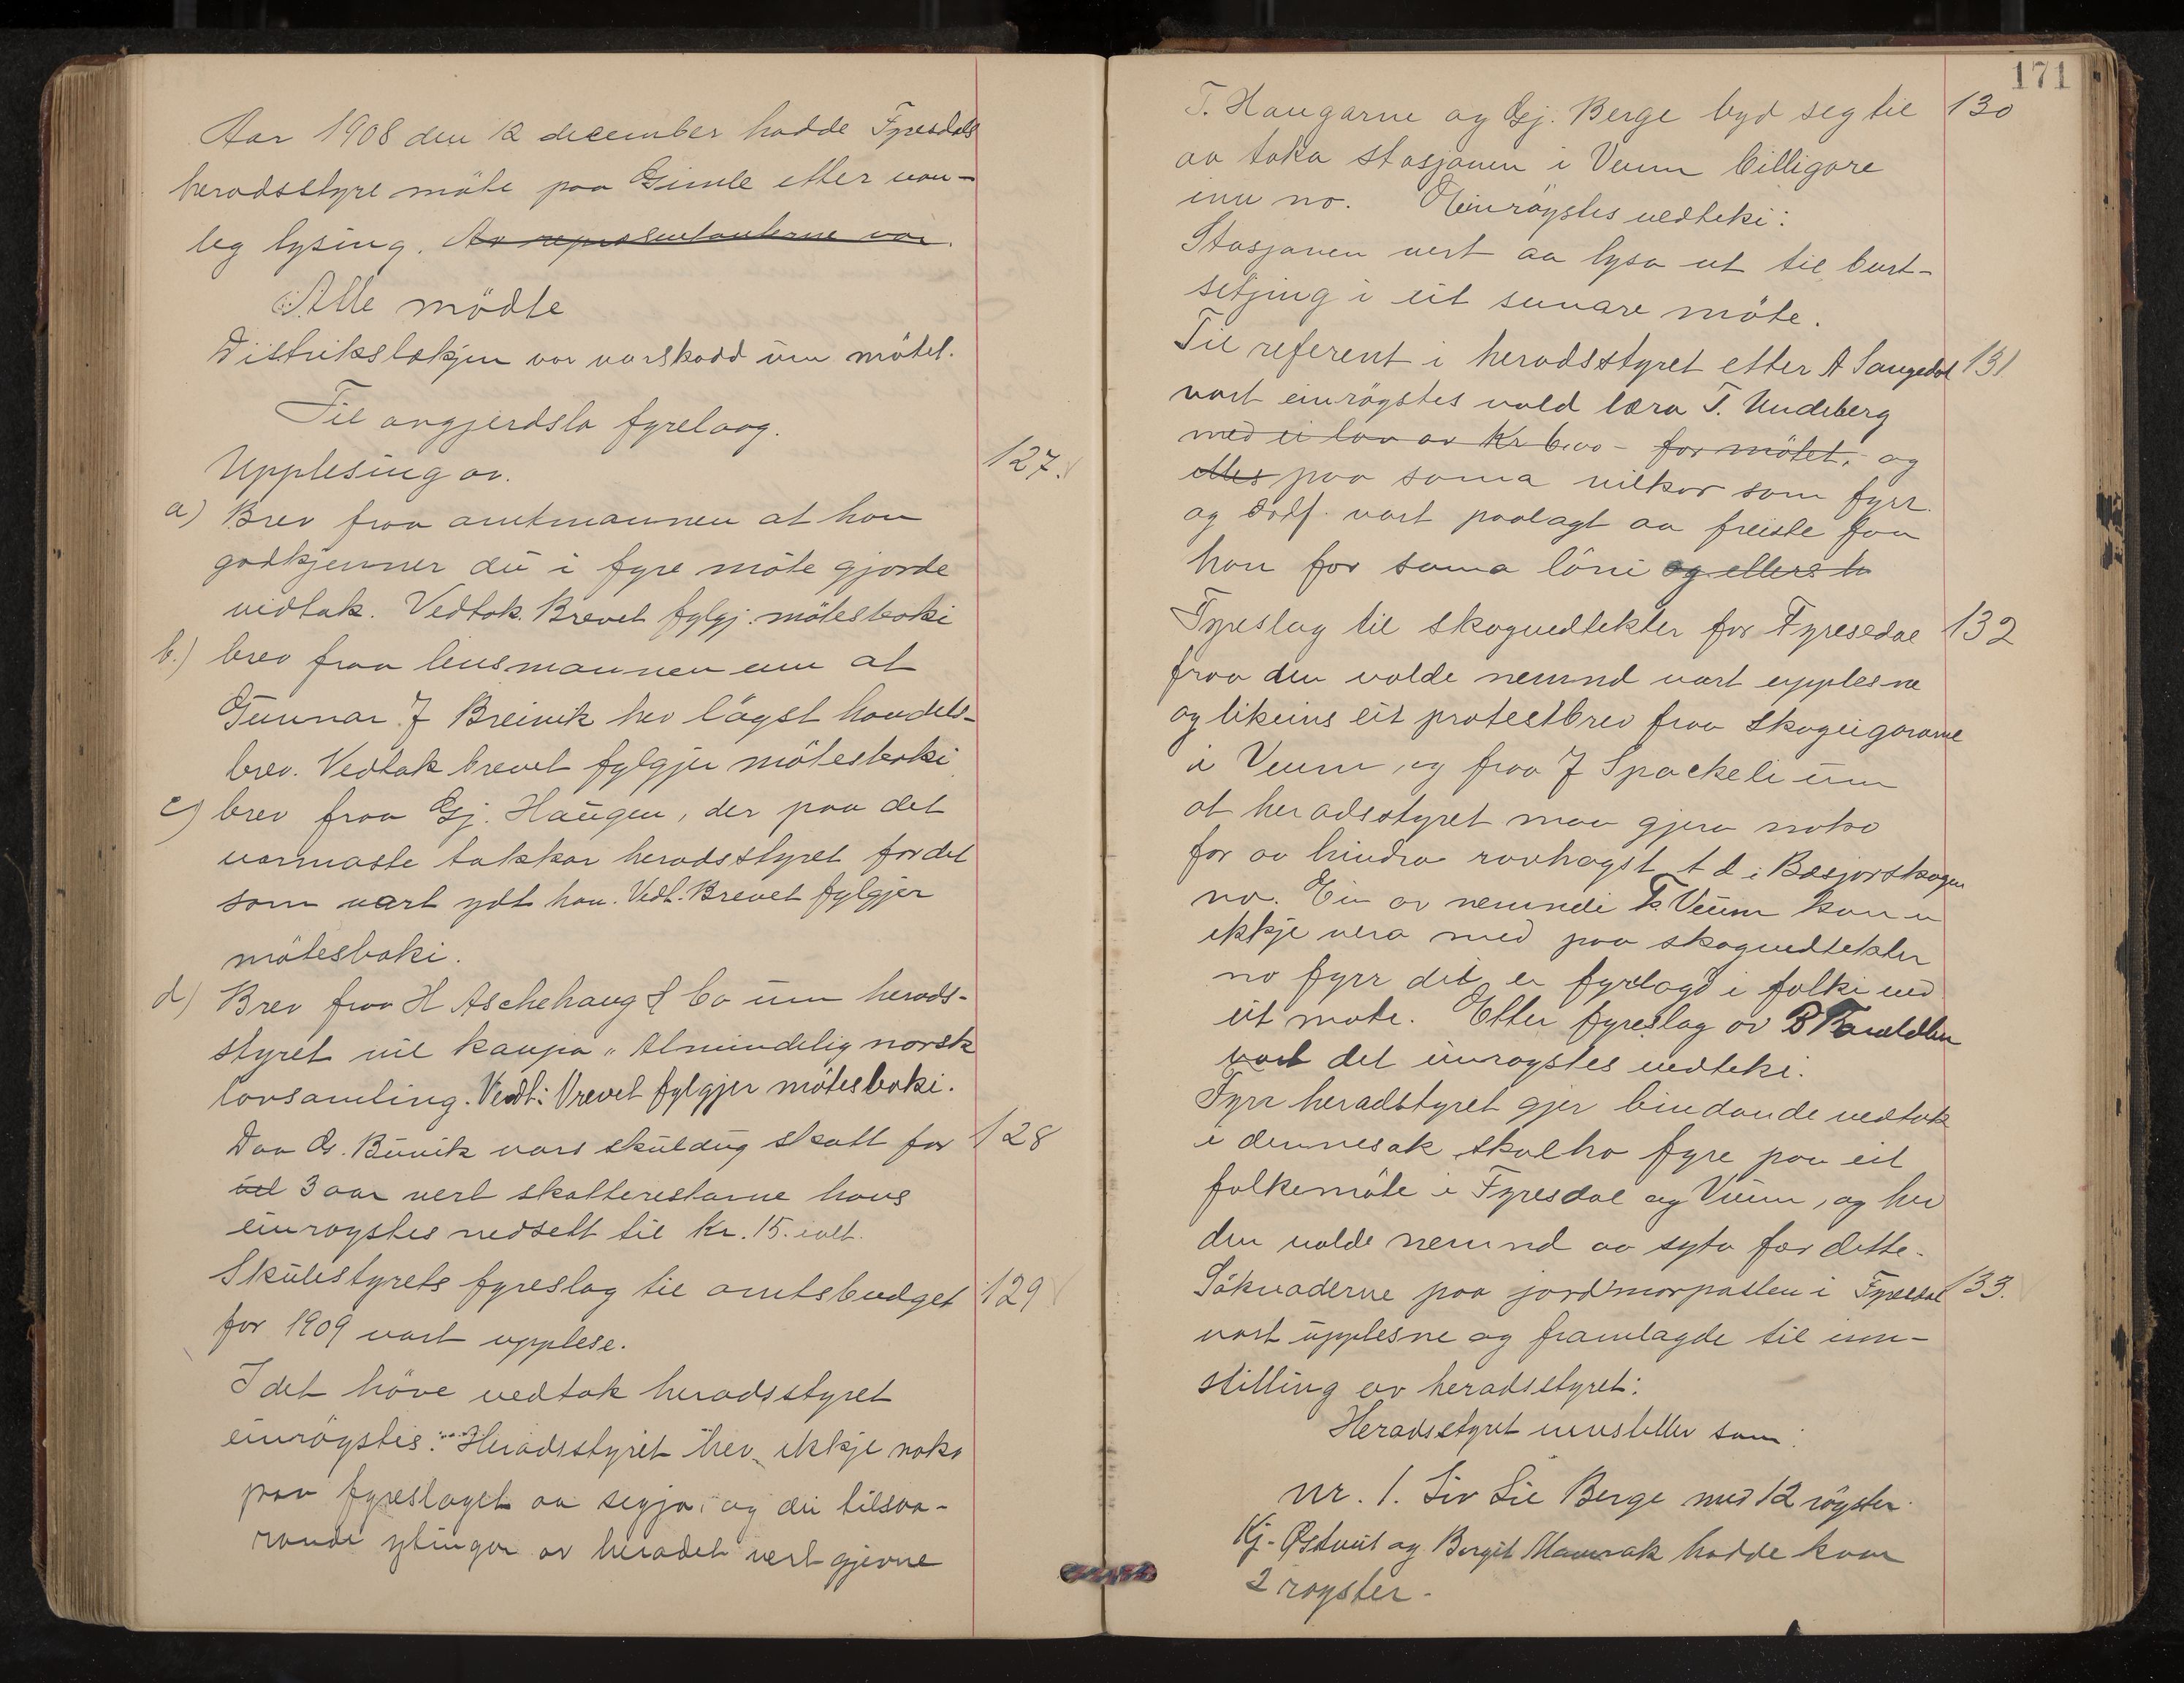 Aar 1908 den 12 december hadde Fyresdals
heradsstyre möte paa Gimle etter van-
leg lysing. Av representanterne var
Alle mödte
Distrikslækjen var varskadd um mötet.
Til avgjerdsla fyrelaag.
Upplesing av. 127.
a) Brev fraa amtmannen at han
godkjenner dei i fyre möte gjorde
vidtak. Vedtok. Brevet fylgj. mötesboki
b.) brev fraa lensmannen um at
Gunnar J Breivik hev lögst handels-
brev. Vedtak brevet fylgjer mötesboki
c) brev fraa Gj. Haugen, der paa det
varmaste takkar heradsstyret for det
som vart ydt han. Vedt. Brevet fylgjer
mötesboki.
d) Brev fraa H Aschehaug & Co um herads-
styret vil kaupa „Almindelig norsk
lovsamling. Vedt: Brevet fylgjer mötesboki.
Daa G. Buvik vars skuldug skatt for 128
3 aar vert skatterestarne hans
einrøystes nedsett til Kr. 15. ialt.
Skulestyrets fyreslag til amtsbudget 129
for 1909 vart upplese.
I det höve vedtok heradsstyret
einröystes: Heradsstyret hev ikkje noko
paa fyreslaget aa segja og dei tilsva-
rande ytingar av heradet vert gjevne
171
T. Haugarne og Gj. Berge byd seg til 130
aa taka stasjonen i Veum billigare
inn no. Einröystes vedteki:
Stasjonen vert aa lysa ut til burt-
setjing i eit sunare möte.
Til referent i heradsstyret etter A Saugedal 131
vart einröystes vald læra T. Undeberg
med ei løn av Kr 6.00 - for mötet, og
elles paa sama vilkor som fyrr.
og ordf. vart paalagt aa freiste faa
han for sama löni og ellers
Fyreslag til skogvedtekter for Fyresdal 132
fraa den valde nemnd vart upplesne
og likeins eit protestbrev fraa skogeigararne
i Veum og fraa J Spockeli um
at heradsstyret maa gjera noko
for aa hindra rovhogst t d i Bæsjorskogen
no. Ein av nemndi T. Veum kann
ikkje vera med paa skogvedtekter
no fyrr det er fyrelagd i folki ved
eit möte. Etter fyreslag av B
vart det einrøystes vedteki.
Fyrr heradstyret gjer bindande vedtak
i dennesak skal ho fyre paa eit
folkemöte i Fyresdal og Veum, og hev
den valde nemnd aa syta for dette.
Sökvaderne paa jordmorposten i Fyresdal 133.
vart upplesne og framlagde til inn-
stilling av heradsstyret:
Heradsstyret innsteller som:
nr. 1. Liv Lie Berge med 12 röyster.
Kj. Østveit og Borgit Momrak hadde kvar
2 røyster.